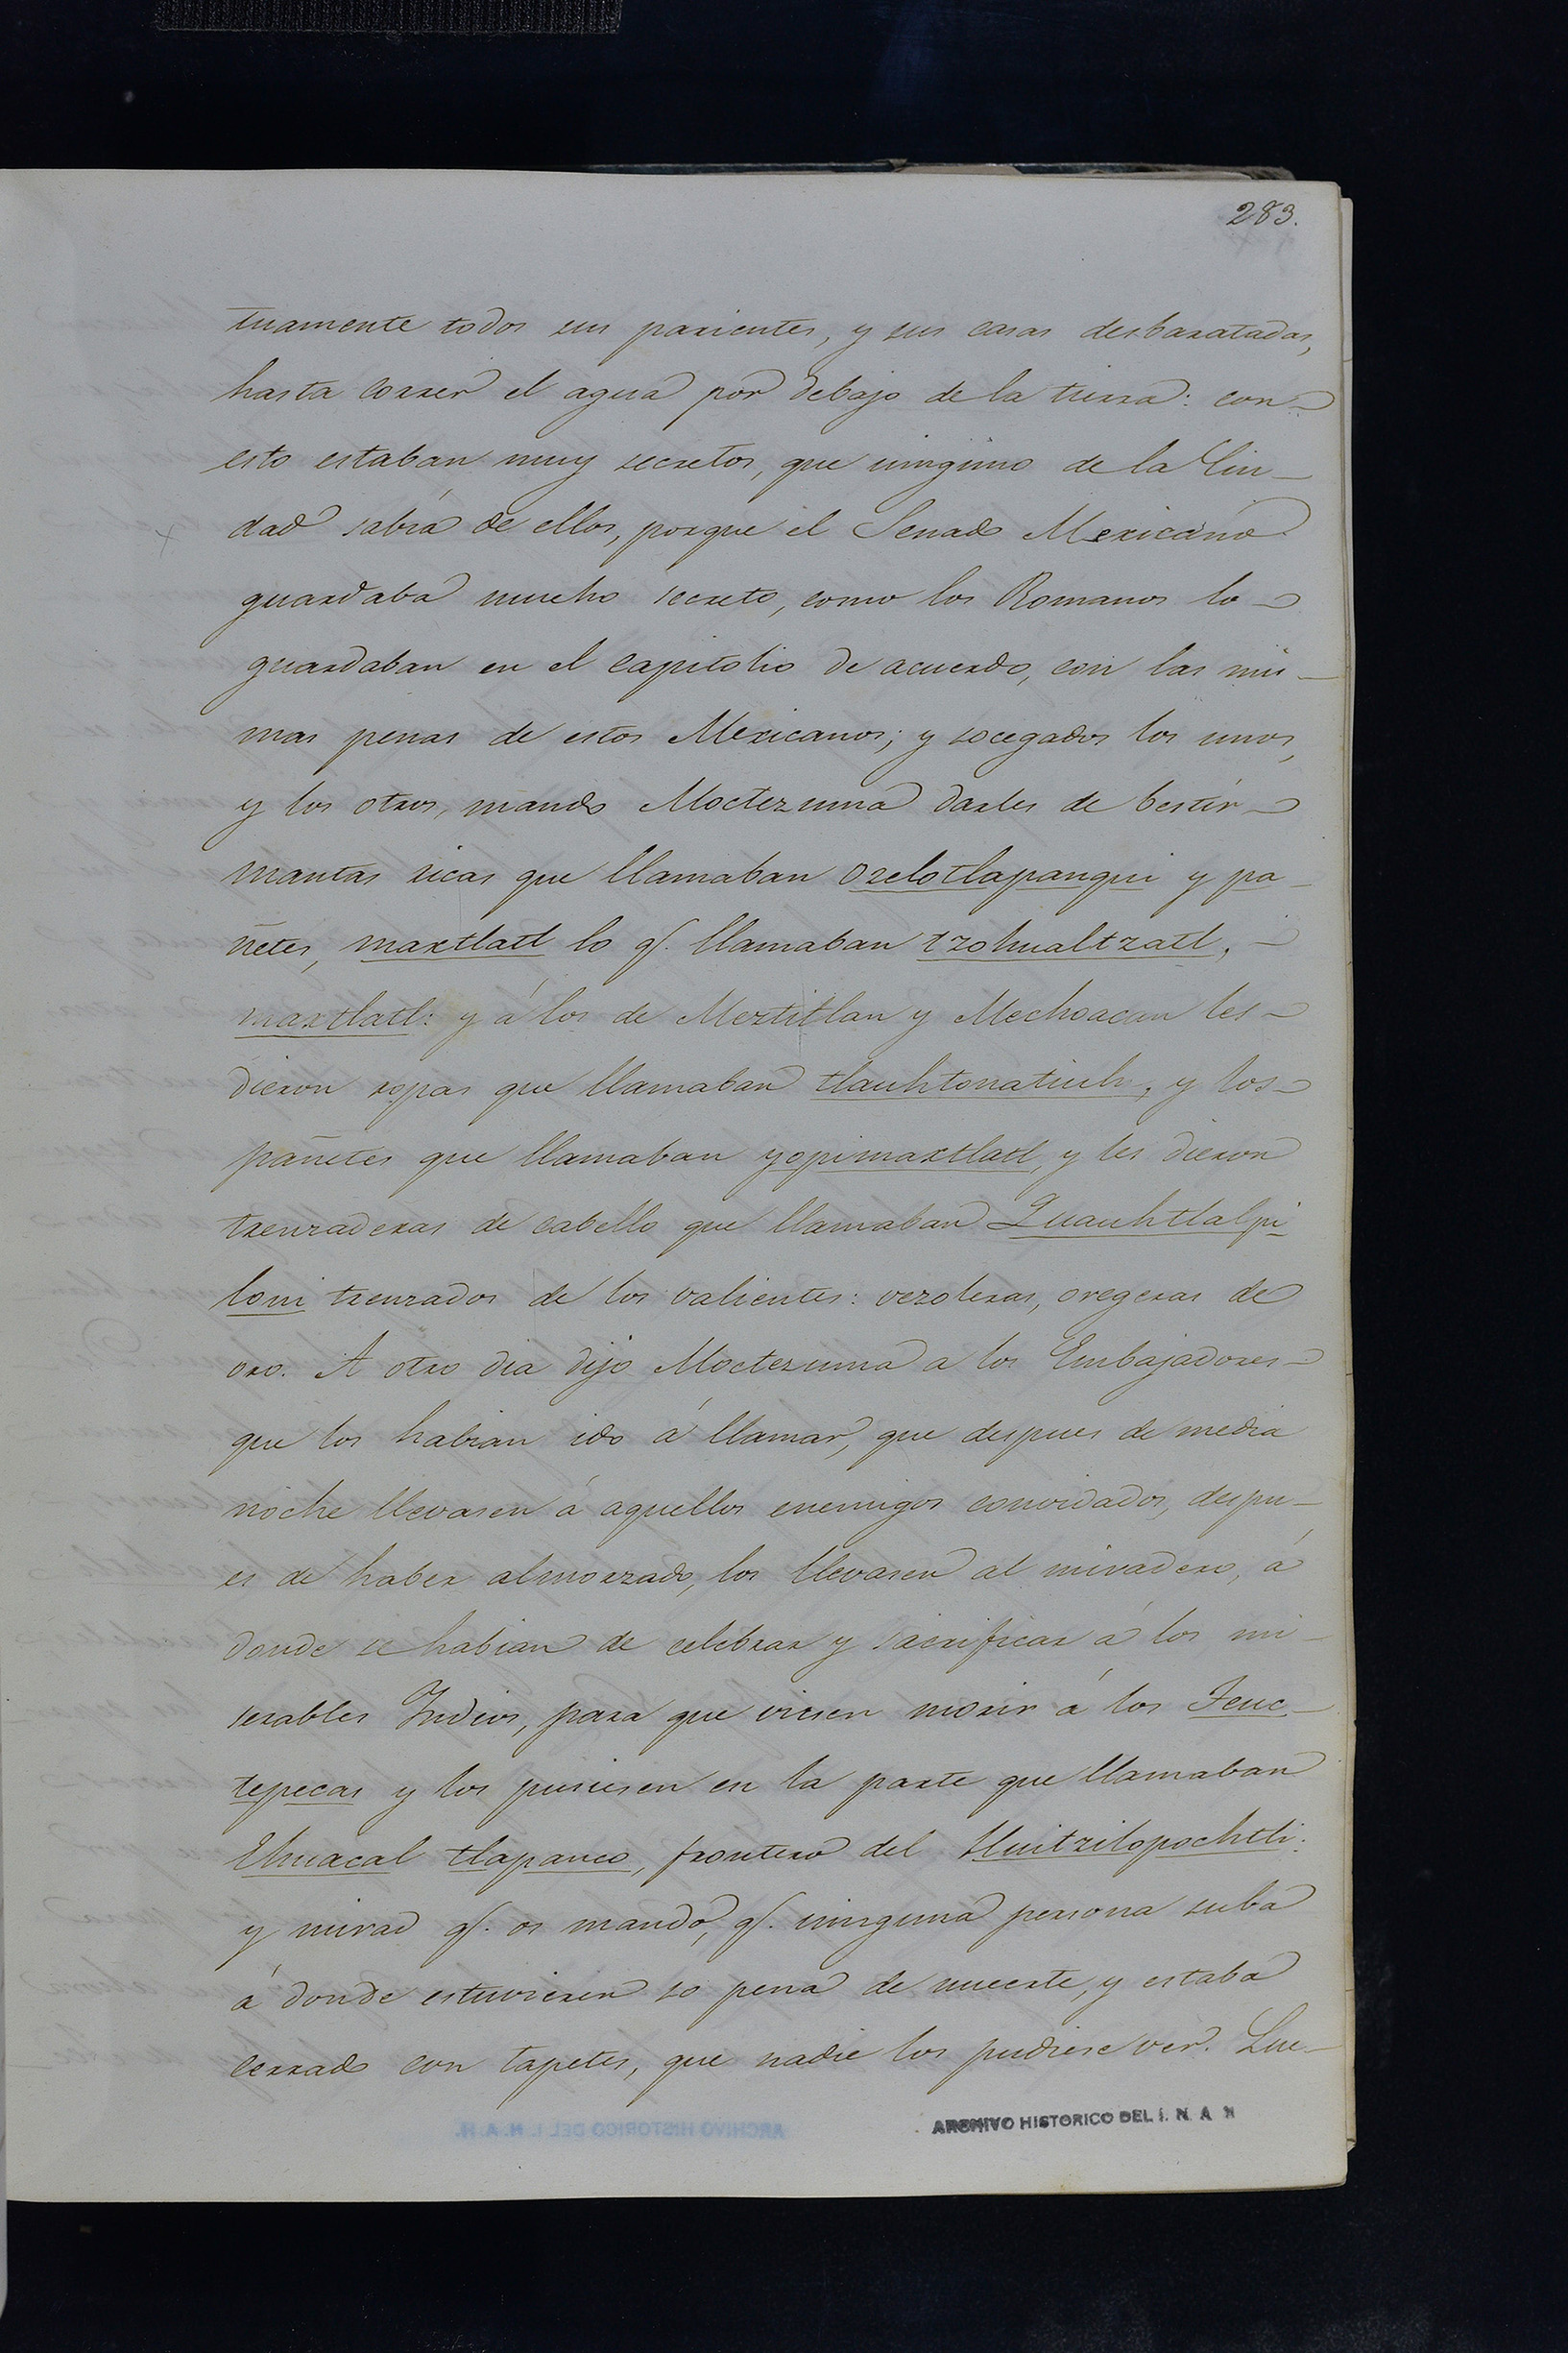 283.
tuamente todos sus parientes, y sus casas desbaratadas,
hasta correr el agua por debajo de la tierra: con
esto estaban muy secretos, que ninguno de la Ciu-
dad sabia de ellos, porque el Senado Mexicano
guardaba mucho secreto, como los Romanos lo
guardaban en el Capitolio de acuerdo, con las mis-
mas penas de estos Mexicanos; y socegados los unos,
y los otros, mandó Moctezuma darles de bestir
mantas ricas que llamaban Ozelotlapanqui y pa-
ñetes, maxtlatl lo q. llamaban tzohualtzatl,
maxtlatl: y á los de Meztitlan y Mechoacan les
dieron ropas que llamaban tlauhtonatiuh, y los
pañetes que llamaban yopimaxtlatl, y les dieron
trenzaderas de cabello que llamaban Quauhtlalpi
loni trenzados de los valientes: vezoleras, oregeras de
oro. A otro dia dijo Moctezuma a los Embajadores
que los habian ido á llamar, que despues de media
noche llevasen á aquellos enemigos convidados, despu-
es de haber almorzado, los llevasen al miradero, á
donde se habian de celebrar y sacrificar á los mi-
serables Indios, para que viesen morir á los Teuc-
tepecas y los pusiesen en la parte que llamaban
Ehuacal tlapanco, frontero del Huitzilopochtli:
y mirad q. os mando, q. ninguna persona suba
á donde estuvieren so pena de muerte, y estaba
cerrado con tapetes, que nadie los pudiese ver. Lue-
ARCHIVO HISTORICO DEL I. N. A. H